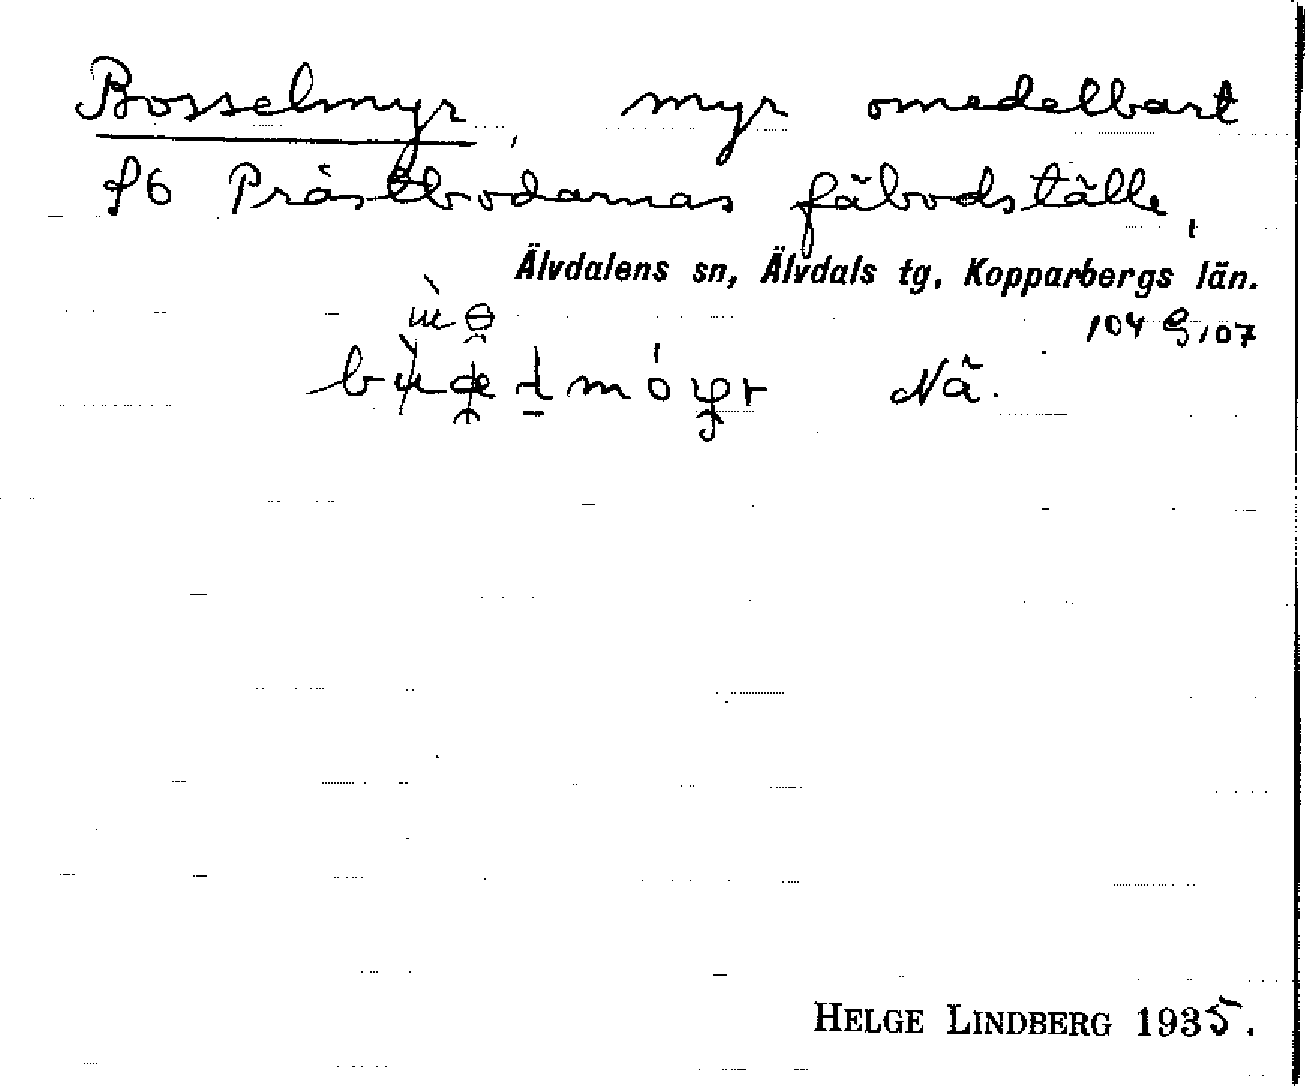 Bosselmyr, myr omedelbart
f6 Prästbodarnas fäbodställe,
Älvdalens sn, Älvdals tg, Kopparbergs län.
104 G, 07
Nä.
HELGE LINDBERG 1935.